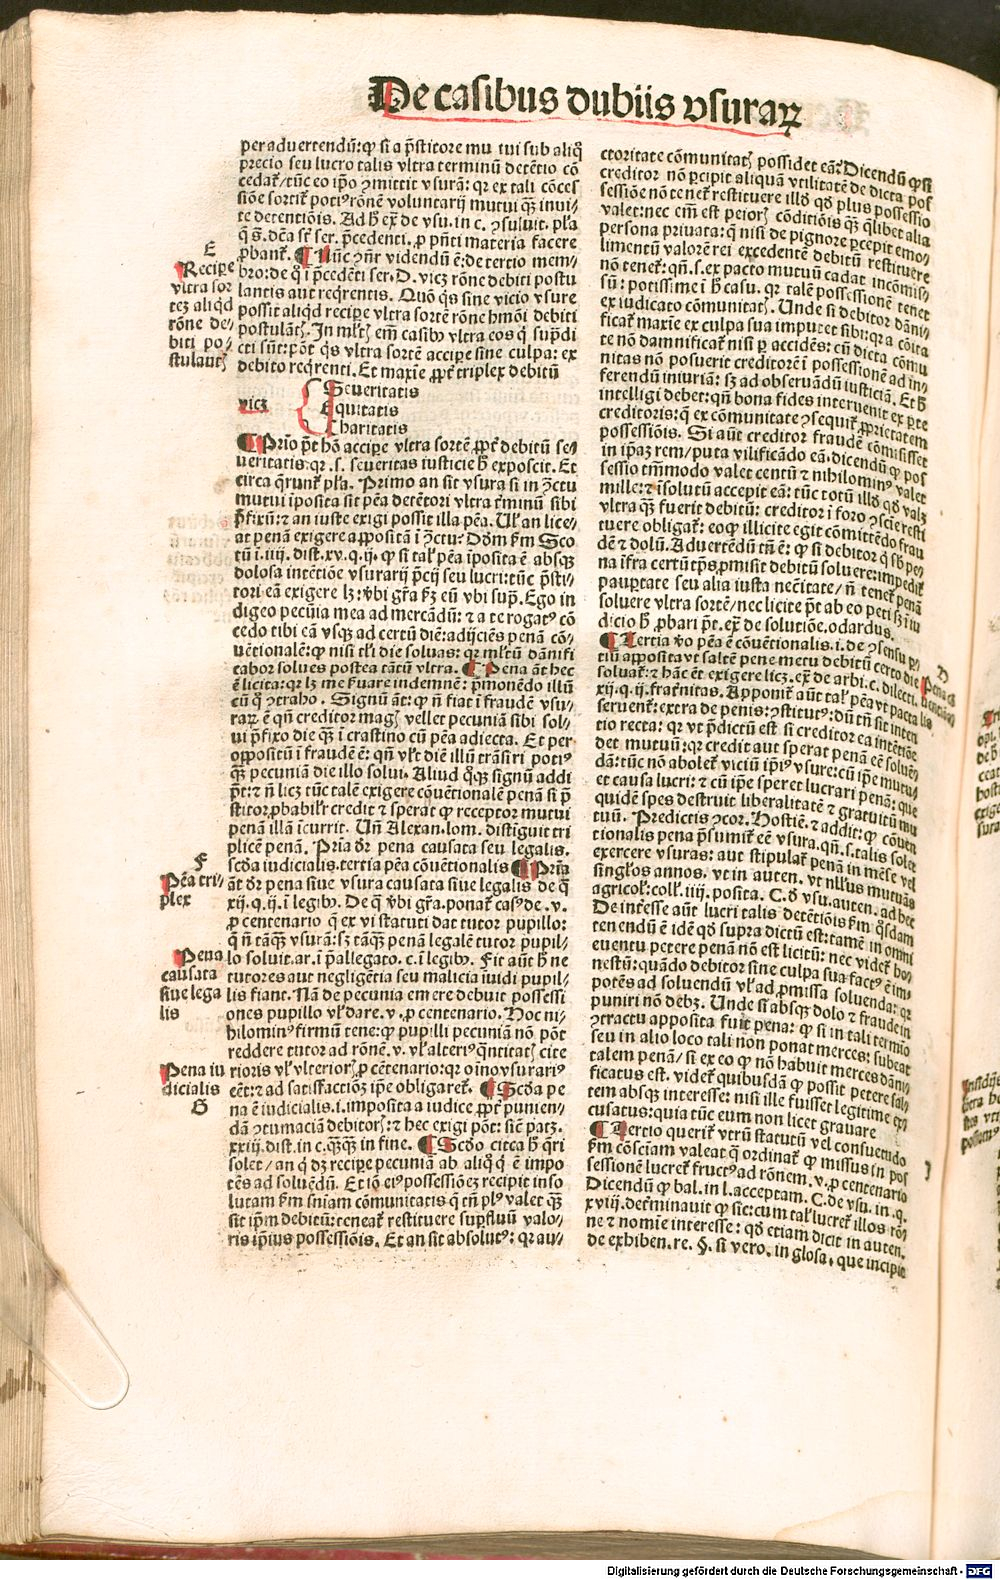 De casibus dubiis vsuraꝝ
per aduertendū: ꝙ si a p̄stitore mu tui sub aliq̄
precio seu lucro talis vltra terminū detētio cō
cedat᷑/ tūc eo ip̄o ꝯmittit vsurā: qr ex tali cōces
siōe sortit᷑ potiꝰ rōnē voluntarij mutui q̄ꝫ inui⸗
te detentiōis. Ad ꝫ de vsu. in c. ꝯsuluit. pl̄a
E
Recipe
vltra sor
teꝫ aliqd
rōne de⸗
biti po⸗
stulantꝭ
possit aliqd recipe vltra sortē rōne hmōi debiti
postulātꝭ. In mltꝭ em̄ casibꝰ vltra eos q̄ sup̄di
cti sūnt: pōt q̄s vltra sortē accipe sine culpa: ex
debito reqrenti. Et maxie ꝓpt᷑ triplex debitū
vicꝫ
Seueritatis
Equitatis
Charitatis
Prīo pōt hō accipe vltra sortē ꝓpt᷑ debitū se⸗
ueritatis: qr .s. seueritas iusticie exposcit. Et
circa q̄runt᷑ pl̄a. Primo an sit vsura si in ꝯctu
mutui iposita sit pēa detētori vltra t᷑minū sibi
p̄fixū: ⁊ an iuste exigi possit illa pēa. Ul᷑ an lice⸗
at penā exigere apposita i ꝯctu: Dōm ẜm Sco
tū i .iiij. dist. xv. q. ij. ꝙ si tal᷑ pēa iposita ē absqꝫ
dolosa intētiōe vsurarij p̄cij seu lucri: tūc p̄sti⸗
digeo pecūia mea ad mercādū: ⁊ a te rogatꝰ cō
cedo tibi eā vsqꝫ ad certū diē: adijciēs penā cō⸗
uētionalē: ꝙ nisi tl̄i die soluas: qr ml̄tū dānifi
cabor solues postea tātū vltra. Pena āt hec
ē licita: qr lꝫ me ẜuare indemnē: p̄monēdo illū
cū q̄ ꝯtraho. Signū āt: ꝙ n̄ fiat i fraudē vsu⸗
raꝝ ē qn̄ creditor magꝭ vellet pecuniā sibi sol⸗
ui p̄fixo die q̄ꝫ i crastino cū pēa adiecta. Et per
oppositū i fraudē ē: qn̄ vl̄t diē illū trāsiri potiꝰ
q̄ꝫ pecuniā die illo solui. Aliud q̄qꝫ signū addi
pōt: ⁊ n̄ licꝫ tūc talē exigere cōuētionalē penā si p̄
stitor ꝓbabil᷑r credit ⁊ sperat ꝙ receptor mutui
penā illā icurrit. Un̄ Alexan. lom. distiguit tri
plicē penā. Prīa dr̄ pena causata seu legalis.
scd̄a iudicialis. tertia pēa cōuētionalis Prīa
F
Pēa tri⸗
plex
āt dr̄ pena siue vsura causata siue legalis de q̄
xij. q. ij. i legibꝰ. De q̄ vbi gr̄a. ponat᷑ casꝰ de .v.
ꝓ centenario q̄ ex vi statuti dat tutor pupillo:
q̄ n̄ tāq̄ꝫ vsurā: sꝫ tāq̄ꝫ penā legalē tutor pupil⸗
Pena
causata
siue lega
lis
lo soluit. ar. i p̄allegato. c. i legibꝰ. Fit aūt ne
tutores aut negligētia seu malicia iuidi pupil⸗
lis fiant. Nā de pecunia emere debuit possessi
ones pupillo vl᷑ dare .v. ꝓ centenario. Hoc ni⸗
hilominꝰ firmū tene: ꝙ pupilli pecuniā nō pōt
reddere tutor ad rōnē .v. vl᷑ alteriꝰ q̄ntitatꝭ cite
Pena iu
dicialis
G
rioris vl᷑ vlteriorꝭ ꝓ cētenario: qr oīno vsurariꝰ
eēt: ⁊ ad satisfactiōꝫ ip̄e obligaret᷑. Scd̄a pe
na ē iudicialis. i. imposita a iudice ꝓpt᷑ punien⸗
dā ꝯtumaciā debitorꝭ: ⁊ hec exigi pōt: sic̄ patꝫ.
xxiij. dist. in c. q̄ꝫq̄ꝫ in fine. Scd̄o circa q̄ri
solet/ an q̄ dꝫ recipe pecuniā ab aliq̄ q̄ ē impo
tēs ad soluēdū. Et iō eiꝰ possessiōeꝫ recipit inso
lutam ẜm sn̄iam cōmunitatis q̄ tn̄ plꝰ valet q̄ꝫ
sit ip̄m debitū: teneat᷑ restituere supfluū valo⸗
ris ip̄ius possessiōis. Et an sit absolutꝰ: qr au⸗
ctoritate cōmunitatꝭ possidet eā: Dicendū ꝙ si
creditor nō ꝑcipit aliquā vtilitatē de dicta pos
sessiōe nō tenet᷑ restituere illd̄ qd̄ plus possessio
valet: nec em̄ est peiorꝭ cōditiōis q̄ꝫ qlibet alia
persona priuata: q̄ nisi de pignore ꝑcepit emo⸗
limentū valorē rei excedentē debitū restituere
nō tenet᷑: qn̄ .s. ex pacto mutuū cadat incōmis⸗
sū: potissime i casu. qr talē possessionē tenet
ex iudicato cōmunitatꝭ. Unde si debitor dāni⸗
ficat᷑ maxie ex culpa sua imputet sibi: qr a cōita
te nō damnificat᷑ nisi ꝑ accidēs: cū dicta cōmu
nitas nō posuerit creditorē i possessionē ad in⸗
ferendū iniuriā: sꝫ ad obseruādū iusticiā. Et
intelligi debet: qn̄ bona fides interuenit ex ꝑte
creditoris: q̄ ex cōmunitate ꝯsequit᷑ ꝓprietatem
possessiōis. Si aūt creditor fraudē cōmisisset
in ip̄aꝫ rem/ puta vilificādo eā. dicendū ꝙ pos
sessio tm̄modo valet centū ⁊ nihilominꝰ valet
mille: ⁊ i solutū accepit eā: tūc totū illd̄ qd̄ valꝫ
vltra q̄ꝫ fuerit debitū: creditor i foro ꝯscīe resti
tuere obligat᷑: eoqꝫ illicite egit cōmittēdo frau
dē ⁊ dolū. Aduertēdū tn̄ ē: ꝙ si debitor q̄ sꝫ pe⸗
na ifra certū tp̄s ꝓmisit debitū soluere: impedit᷑
paupertate seu alia iusta necitate/ n̄ tenet᷑ penā
soluere vltra sortē/ nec licite pōt ab eo peti sꝫ i iu
dicio ꝓbari pōt. ex̄ de solutiōe. odardus.
Tertia vo pēa ē cōuētionalis. i. de ꝯsensu ꝑ
tiū appositavt saltē pene metu debitū certo die
soluat᷑: ⁊ hāc ēt exigere licꝫ. ex̄ de arbi. c. dilecti.
xij. q. ij. frat᷑nitas. Apponit᷑ aūt tal᷑ pēa vt pacta
seruent᷑: extra de penis: ꝯstitutꝰ: dū tn̄ sit inten
tio recta: qr vt p̄dictū est si creditor ea intētiōe
det mutuū: qr credit aut sperat penā eē soluē⸗
dā: tūc nō abolet᷑ viciū ip̄iꝰ vsure: cū ip̄e mutu⸗
et causa lucri: ⁊ cū ip̄e speret lucrari penā: que
quidē spes destruit liberalitatē ⁊ gratuitū mu
tuū. Predictis ꝯcor. Hostiē. ⁊ addit: ꝙ cōuen
tionalis pena p̄sumit᷑ eē vsura. qn̄ .s. talis solet
exercere vsuras: aut stipulat᷑ penā in mēse vel
singl̄os annos. vt in auten. vt nll̄us mutuās
agricol᷑: coll᷑. iiij. posita. C. de vsu. auten. ad hec
De int᷑esse aūt lucri talis detētiōis ẜm q̄sdam
tenendū ē idē qd̄ supra dictū est: tamē in omni
euentu petere penā nō est licitū: nec videt᷑ ho⸗
nestū: quādo debitor sine culpa sua factꝰ ē im⸗
potēs ad soluendū vl᷑ ad ꝓmissa soluenda: qr
puniri nō debꝫ. Unde si absqꝫ dolo ⁊ fraude in
ꝯtractu apposita fuit pena: ꝙ si in tali termīo
seu in alio loco tali non ponat merces: subeat
talem penā/ si ex eo ꝙ nō habuit merces dāni⸗
ficatus est. videt᷑ quibusdā ꝙ possit petere sal⸗
tem absqꝫ interesse: nisi ille fuisset legitime ex⸗
cusatus: quia tūc eum non licet grauare
Tertio querit᷑ vtrū statutū vel consuetudo
ẜm cōsciam valeat q̄ ordinat᷑ ꝙ missus in pos
sessionē lucret᷑ fructꝰ ad rōnem .v. ꝓ centenario
Dicendū ꝙ bal. in l. acceptam. C. de vsu. in .q.
xviij. det᷑minauit ꝙ sic: cum tal᷑ lucret᷑ illos rōe
ne ⁊ nomīe interesse: qd̄ etiam dicit in auten.
de exhiben. re. §. si vero. in glosa. que incipit
Digitalisierung gefördert durch die Deutsche Forschungsgemeinschaft - DFG